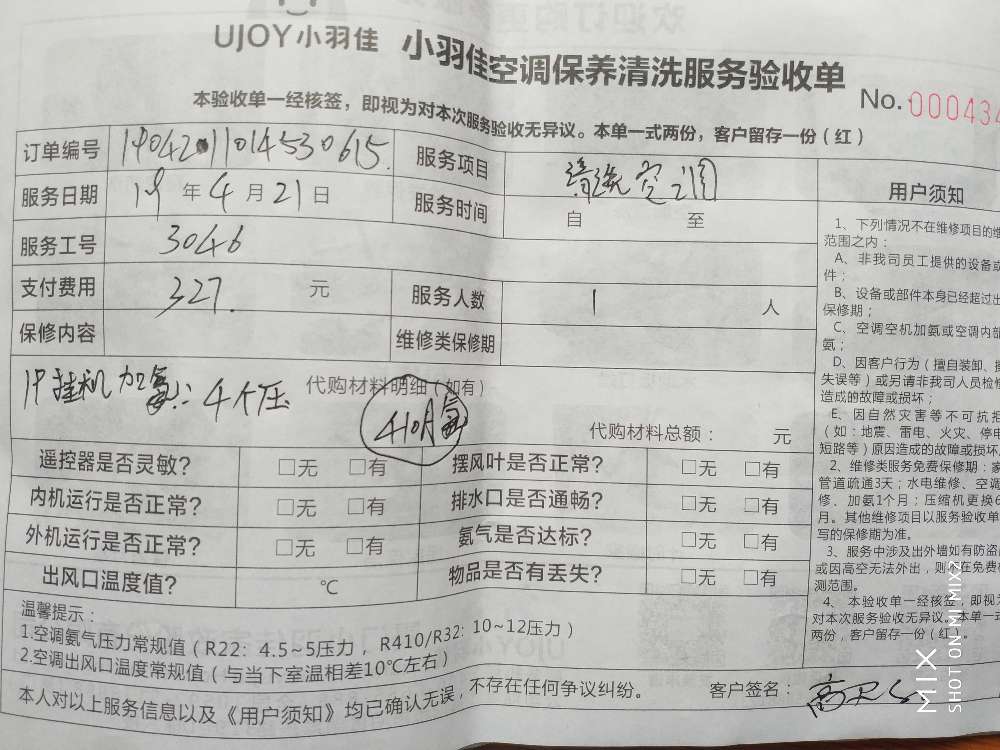 UJOY小羽佳 小羽佳空调保养清洗服务验收单
No. 000434
本验收单一经核签，即视为对本次服务验收无异议。本单一式两份，客户留存一份（红）
订单编号 服务项目 清洗空调
服务日期 19年4月21日 服务时间 自 至
服务工号 3046
支付费用 327. 元 服务人数 1 人
保修内容 维修类保修期
1P挂机加氨：4个压 代购材料明细（如有）
410A氨
代购材料总额： 元
遥控器是否灵敏？ □无 □有 摆风叶是否正常？ □无 □有
内机运行是否正常？ □无 □有 排水口是否通畅？ □无 □有
外机运行是否正常？ □无 □有 氨气是否达标？ □无 □有
出风口温度值？ ℃ 物品是否有丢失？ □无 □有
温馨提示：
1.空调氨气压力常规值（R22：4.5~5压力，R410/R32：10~12压力）
2.空调出风口温度常规值（与当下室温相差10℃左右）
本人对以上服务信息以及《用户须知》均已确认无误，不存在任何争议纠纷。 客户签名：
用户须知
1、下列情况不在维修项目的维
范围之内：
A、非我司员工提供的设备或
件；
B、设备或部件本身已经超过出
保修期；
C、空调空机加氨或空调内部
氨；
D、因客户行为（擅自装卸、
失误等）或另请非我司人员检修
造成的故障或损坏；
E、因自然灾害等不可抗拒
（如：地震、雷电、火灾、停电
短路等）原因造成的故障或损坏。
2、维修类服务免费保修期：家
管道疏通3天；水电维修、空调
修、加氨1个月；压缩机更换6
月。其他维修项目以服务验收单
写的保修期为准。
3、服务中涉及出外墙如有防盗
或因高空无法外出，则不在免费
测范围。
4、本验收单一经核签，即视为
对本次服务验收无异议。本单一式
两份，客户留存一份（红）。
MIX
SHOT ON MI MIX2